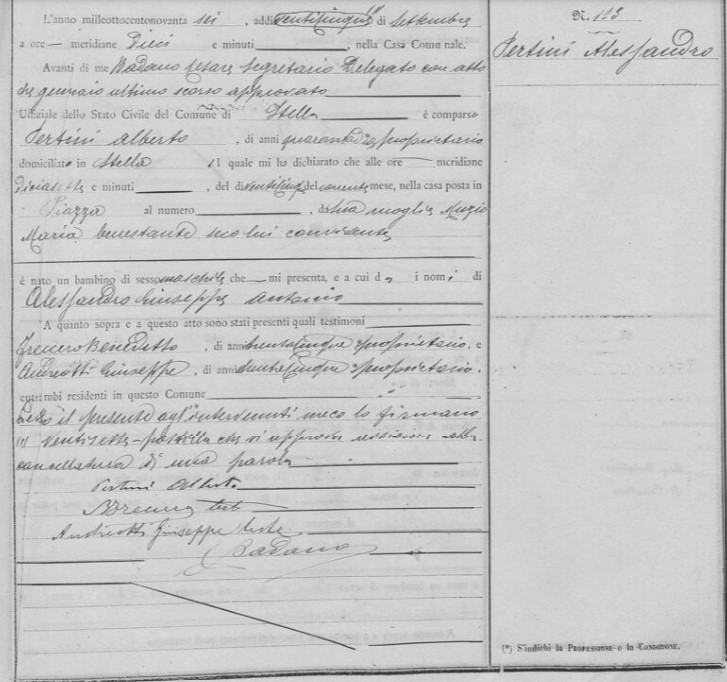 L'anno milleottocentonovanta sei, addì venticinque (1) di Settembre
a ore — meridiane Dieci e minuti, nella Casa Comunale.
Avanti di me Badano Cesare Segretario Delegato con atto
del gennaio ultimo scorso approvato
Uffiziale dello Stato Civile del Comune di Stella è comparso
Pertini Alberto, di anni proprietario
domiciliato in Stella il quale mi ha dichiarato che alle ore — meridiane
Diciasette e minuti, del dì venticinque del corrente mese, nella casa posta in
Piazza al numero, da sua moglie Muzio
Maria benestante seco lui convivente
è nato un bambino di sesso maschile che — mi presenta, e a cui dà i nomi di
Alessandro Giuseppe Antonio
A quanto sopra e a questo atto sono stati presenti quali testimoni
Benedetto, di anni trentacinque proprietario, e
Andreotti Giuseppe, di anni proprietario,
entrambi residenti in questo Comune
Letto il presente agl'intervenuti meco lo firmano
(1) Ventisette - postilla che si approva alla
cancellatura di una parola
Pertini Alberto
teste
Andreotti Giuseppe teste
C Badano
N. 113
Pertini Alessandro
(*) S'indichi la PROFESSIONE o la CONDIZIONE.